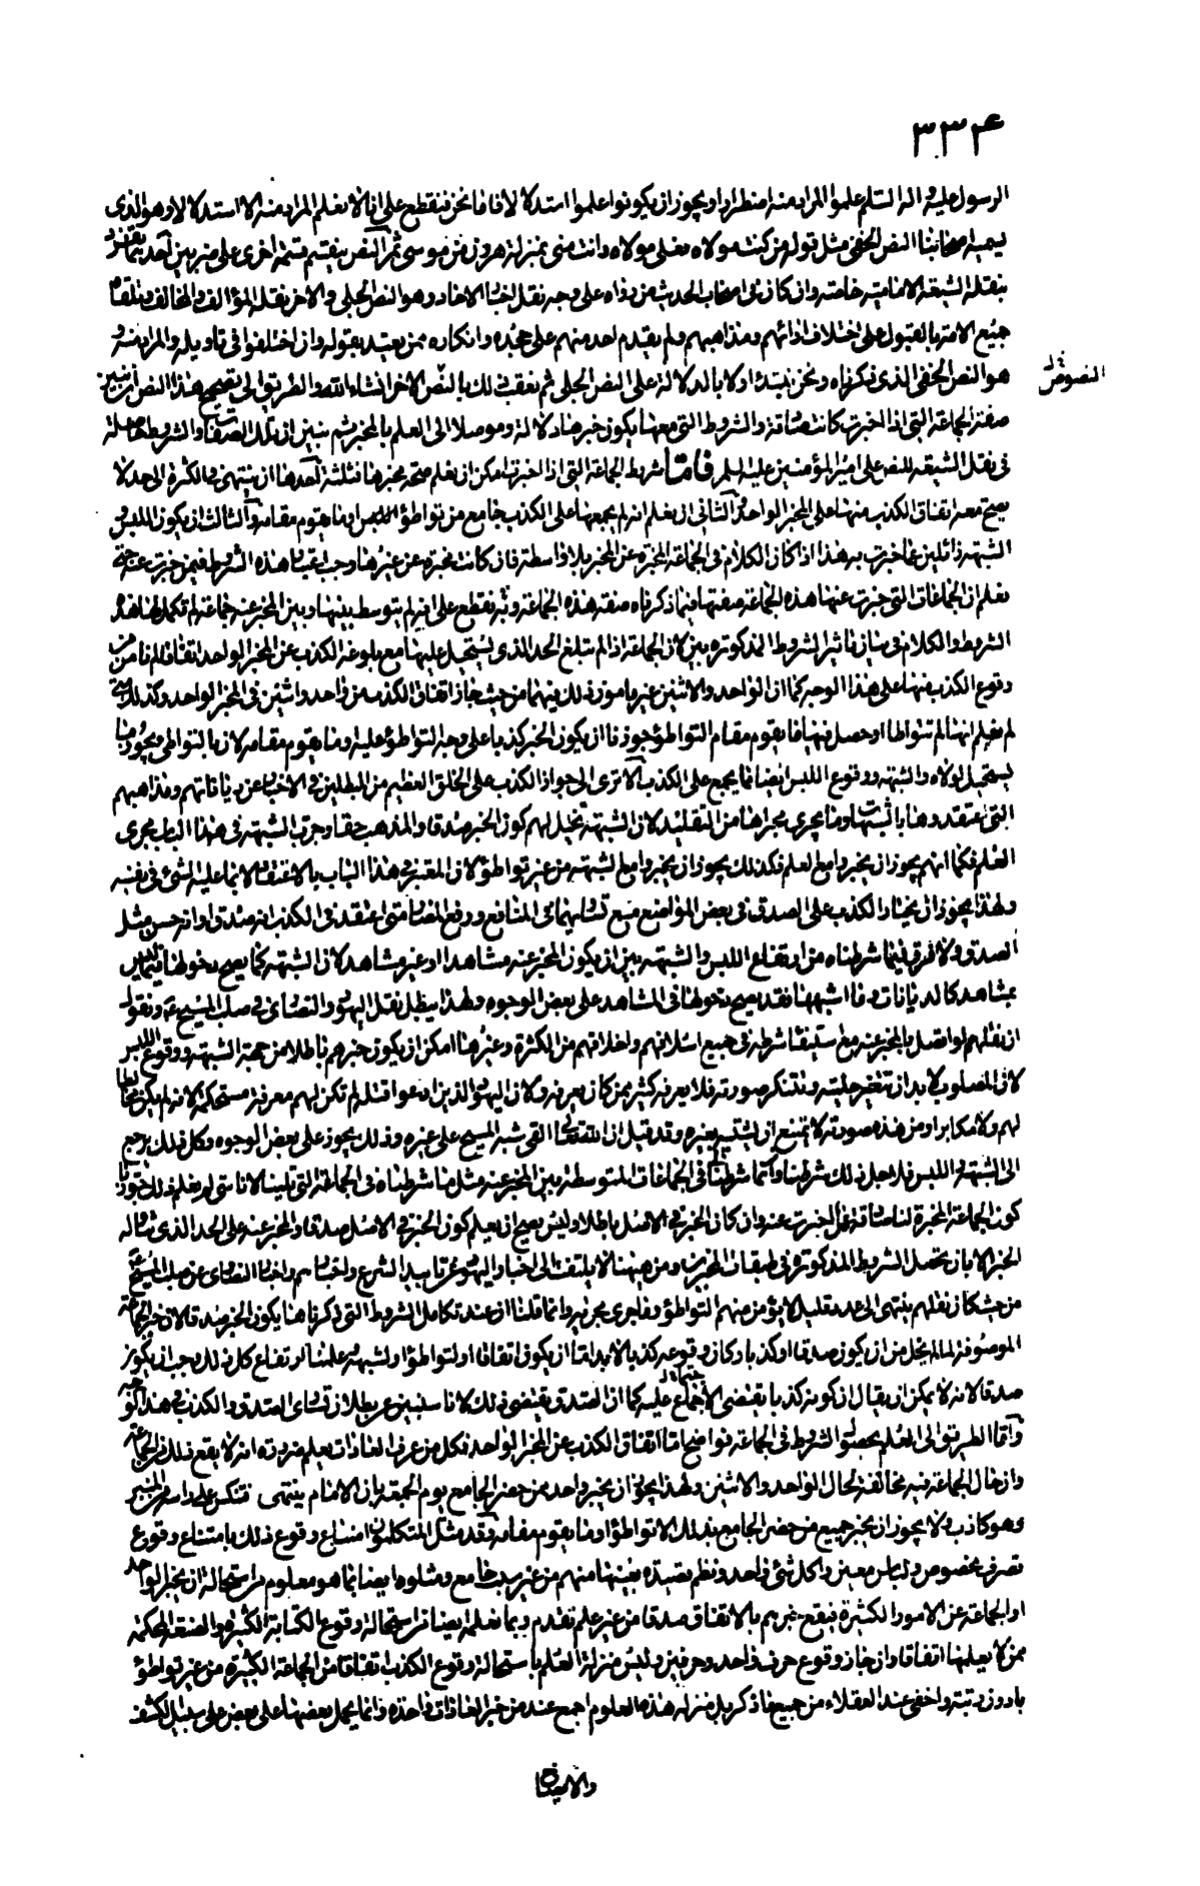 ٣٣۴
الرسول عليه و اله السلم علموا المراد منه اضطرارا و يجوز ان يكونوا علموا استدلالا فاما نحن فنقطع على انا لا نعلم المراد منه الا استدلالا و هو الذى
يسميه اصحابنا النص الخفى مثل قوله من كنت مولاه فعلى مولاه وانت منى بمنزلة هرون من موسى ثم النص ينقسم قسمة اخرى على ضربين احدهما تفرد
بنقله الشيعة الامامية خاصة وان كان فى اصحاب الحديث من رواه على وجه نقل اخبار الاحاد و هو النص الجلى والاخر نقله المؤالف والمخالف و تلقاه
جميع الامة بالقبول على اختلاف ارائهم ومذاهبهم ولم يقدم احد منهم على جحده وانكاره ممن يعتد بقوله وان اختلفوا فى تاويله والمراد منه و
هو النص الخفى الذى ذكرناه ونحن نبتدئ اولا بالدلالة على النص الجلى ثم نعقب ذلك بالنص الاخر انشاء الله والطريق الى تصحيح هذا النص ان نبين
النصوص
صفة الجماعة التى اذا اخبرت كانت صادقة والشروط التى معها يكون خبرها دلالة وموصلا الى العلم بالمخبر ثم نبين ان تلك الصفات والشروط حاصلة
فى نقل الشيعة للنص على امير المؤمنين عليه السلم فاما شروط الجماعة التى اذا اخبرت امكن ان يعلم صحة مخبرها فثلثة احدها ان ينتهى فى الكثرة الى حد لا
يصح معه اتفاق الكذب منها على المخبر الواحد والثانى ان يعلم انه لم يجمعها على الكذب جامع من تواطؤ او ما يقوم مقامه والثالث ان يكون اللبس و
الشبهة زائلين عما خبرت به هذا اذا كان الكلام فى الجماعة المخبرة عن المخبر بلا واسطة فان كانت مخبرة عن غيرها وجب اعتبار هذه الشروط فيمن خبرت عنه حتى
يعلم ان الجماعات التى خبرت عنها هذه الجماعة صفتها فيما ذكرناه صفة هذه الجماعة وثم نقطع على انه لم يتوسط بينها وبين المخبر عنه جماعة لم تكمل لها هذه
الشروط والكلام فى بيان تاثير الشروط المذكورة بين لان الجماعة اذا لم تبلغ الحد الذى يستحيل عليها مع بلوغه الكذب عن المخبر الواحد اتفاقا لم نامن من
وقوع الكذب منها على هذا الوجه كما ان الواحد والاثنين غير مامون ذلك منهما من حيث جاز اتفاق الكذب من واحد واثنين فى المخبر الواحد وكذلك متى
لم نعلم انها لم تتواطا او حصل فيها ما يقوم مقام التواطؤ جوزنا ان يكون الخبر كذبا على وجه التواطؤ عليه وما يقوم مقامه لان بالتواطى ويجوز ما
يستحيل لولاه والشبهة ووقوع اللبس ايضا مما يجمع على الكذب الا ترى الى جواز الكذب على الخلق العظيم من المبطلين فى الاخبار عن دياناتهم ومذاهبهم
التى اعتقدوها بالشبهات وما يجرى مجراها من التقليد لان الشبهة تخيل لهم كون الخبر صدقا والمذهب حقا وجرت الشبهة فى هذا الباب مجرى
العلم فكما انهم يجوز ان يخبروا مع العلم فكذلك يجوز ان يخبروا مع الشبهة من غير تواطؤ لان المعتبر فى هذا الباب بالاعتقاد لا بما عليه الشئ فى نفسه
ولهذا يجوز ان يختار الكذب على الصدق فى بعض المواضع مع تساويهما فى المنافع و دفع المضار متى اعتقد فى الكذب انه صدق او انه حسن مثل
الصدق ولا فرق فيما شرطناه من ارتفاع اللبس والشبهة بين ان يكون المخبر عنه مشاهدا او غير مشاهد لان الشبهة كما يصح دخولها فيما ليس
بمشاهد كالديانات وما اشبهها فقد يصح دخولها فى المشاهد على بعض الوجوه ولهذا يبطل نقل اليهود والنصارى فى صلب المسيح ع ونقول
ان نقلهم لو اتصل بالمخبر عنه مع استيفاء شرطه فى جميع اسلافهم واخلافهم من الكثرة وغيرها امكن ان يكون خبرهم باطلا من جهة الشبهة ووقوع اللبس
لان المصلوب لابد ان تتغير حليته وتتنكر صورته فلا يعرفه كثير ممن كان يعرفه ولان اليهود الذين ادعوا قتله لم تكن لهم معرفة مستحكمة لانه لم يكن مخالطا
لهم ولا مكاثرا ومن هذه صورته لا يمتنع ان يشتبه بغيره وقد قيل ان الله تعالى القى شبه المسيح على غيره وذلك يجوز على بعض الوجوه وكل ذلك يرجع
الى الشبهة واللبس فلاجل ذلك شرطنا وانما شرطنا فى الجماعات المتوسطة بين المخبر عنه مثل ما شرطناه فى الجماعة التى تلينا لانا متى لم نعلم ذلك جوزنا
كون الجماعة المخبرة لنا صادقة عمن خبرت عنه وان كان الخبر فى الاصل باطلا وليس يصح ان يعلم كون الخبر فى الاصل صدقا والمخبر عنه على الحد الذى تناوله
الخبر الا بان تحصل الشروط المذكورة فى طبقات المخبرين ومن ههنا لا يلتفت الى اخبار اليهود عن تابيد الشرع واخبارهم واخبار النصارى عن صلب المسيح
من حيث كان نقلهم ينتهى الى عدد قليل لا يؤمن منهم التواطؤ وما جرى مجراه وانما قلنا ان عند تكامل الشروط التى ذكرناها يكون الخبر صدقا لان خبر الجماعة
الموصوفة لما لم يخل من ان يكون صدقا او كذبا وكان وقوعه كذبا لابد اما ان يكون اتفاقا او لتواطؤ او لشبهة وعلمنا ارتفاع كل ذلك وجب ان يكون
صدقا لانه لا يمكن ان يقال ان كونه كذبا يقتضى الاجماع عليه كما ان الصدق يقتضى ذلك لانا سنبين عن بطلان تساوى الصدق والكذب فى هذا الوجه
واما الطريق الى العلم بحصول الشروط فى الجماعة فواضح اما اتفاق الكذب عن المخبر الواحد فكل من عرف العادات يعلم ضرورة انه لا يقع ذلك من الجماعة
وان حال الجماعة فيه مخالفة لحال الواحد والاثنين ولهذا يجوز ان يخبر واحد ممن حضر الجامع يوم الجمعة بان الامام تنكس على ام راسه من المنبر
وهو كاذب ولا يجوز ان يخبر جميع من حضر الجامع بذلك الا لتواطؤ او ما يقوم مقامه وقد مثل المتكلمون امتناع وقوع ذلك بامتناع وقوع
تصرف مخصوص ولباس معين واكل شئ واحد ونظم قصيدة بعينها منهم من غير سبب جامع ومثلوه ايضا بما هو معلوم من استحالة ان يخبر الواحد
او الجماعة عن الامور الكثيرة فيقع خبرهم بالاتفاق صدقا من غير علم تقدم وبما نعلمه ايضا من استحالة وقوع الكتابة الكثيرة والصنعة المحكمة
ممن لا يعلمها اتفاقا وان جاز وقوع حرف واحد وحرفين وليس منزلة العلم باستحالة وقوع الكذب اتفاقا من الجماعة الكثيرة من غير تواطؤ
بادون رتبة واخفى عند العقلاء من جميع ما ذكر بل منزلة هذه العلوم اجمع عند من خبر العادات واحدة وانما يحمل بعضها على بعض على سبيل الكشف
والايضاح